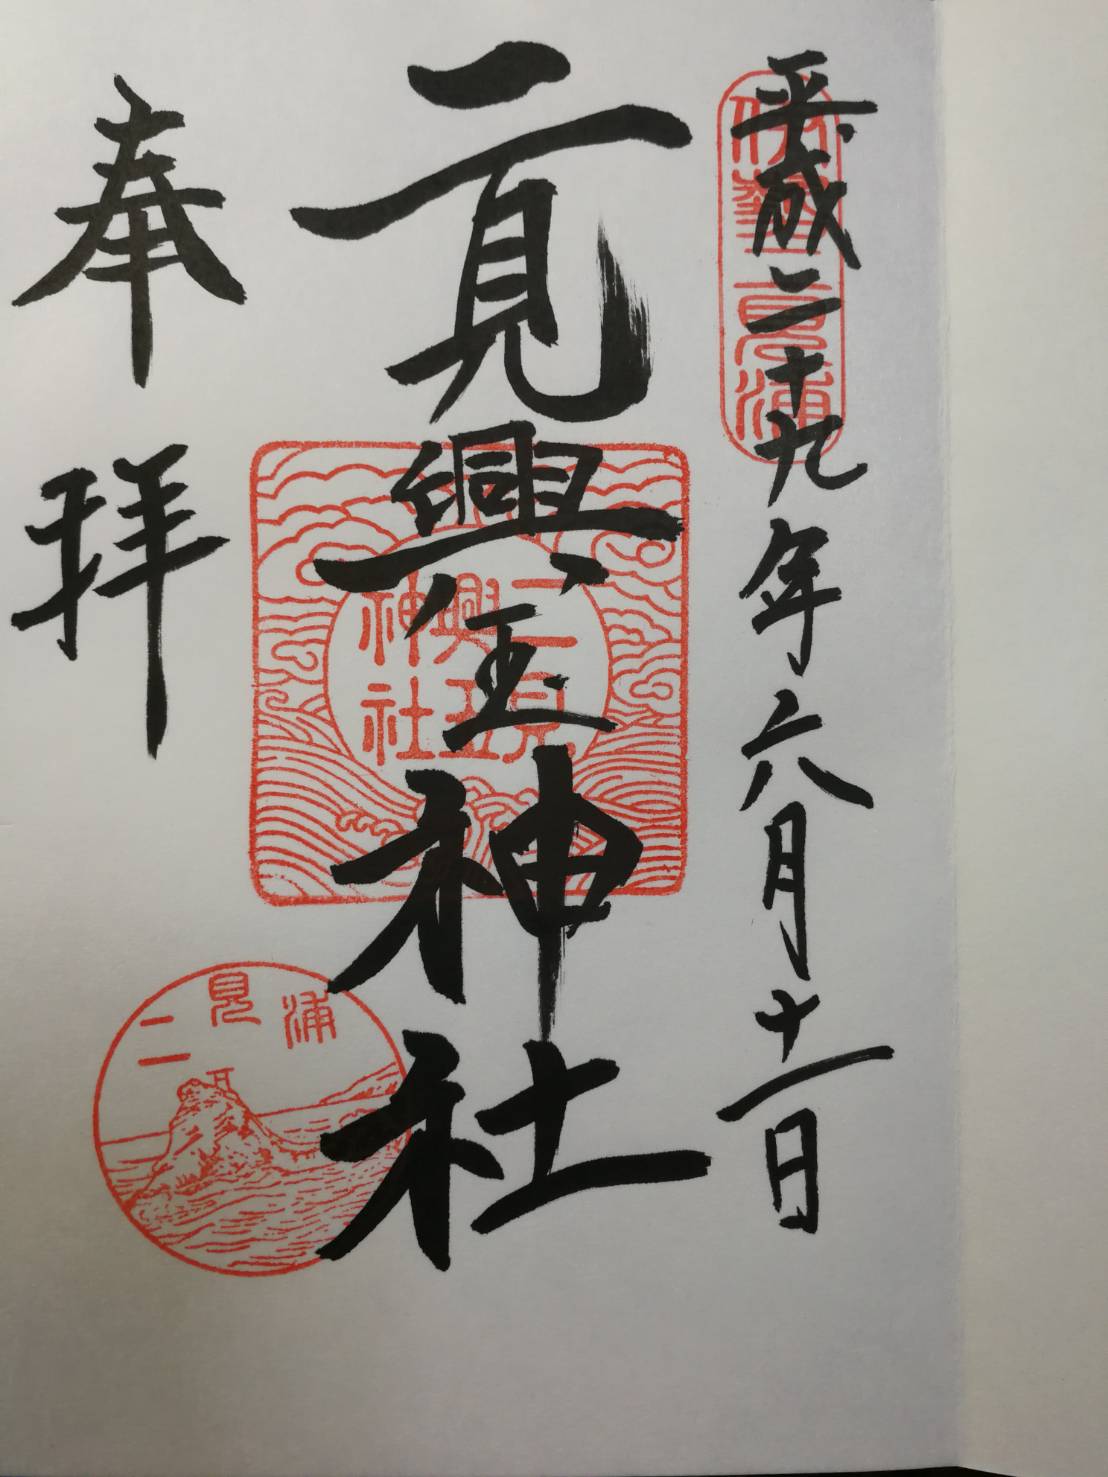 平成二十九年六月十一日
伊勢二見浦
二見興玉神社
二見興玉神社
奉拝
二見浦